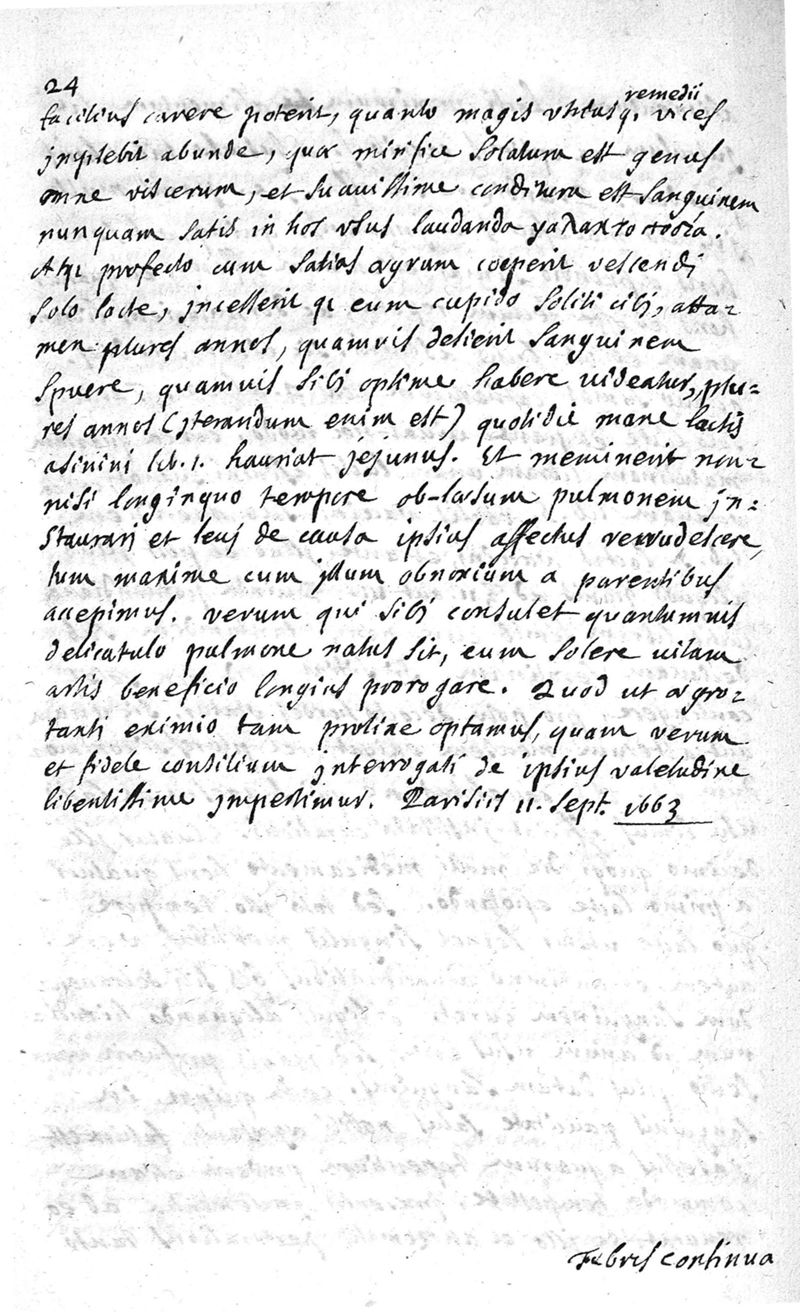 24
facilius carere poterit, quanto magis utriusq; remedii vices
jmplebit abunde, quæ mirifice solatura est genus
omne viscerum, et suavissime conditura est sanguinem
nunquam satis in hos usus laudanda γαλακτοποσία.
Atqui profecto cum satias ægrum cœperit vescendi
solo lacte, jncesserit q; eum cupido soliti cibj, atta-
men plures annos, quamvis desierit sanguinem
spuere, quamvis sibj optime habere videatur, plu-
res annos (jterandum enim est) quotidie mane lactis
asinini lib. 1. hauriat jejunus. Et meminerit non-
nisi longinquo tempore ob-læsum pulmonem jn-
staurarj et levj de causa ipsius affectus recrudescere,
tum maxime cum jllum obnoxium a parentibus
accepimus. verum qui sibj consulet quantumvis
delicatulo pulmone natus sit, eum solere vitam
artis beneficio longius prorogare. Quod ut ægro-
tanti eximio tam prolixe optamus, quam verum
et fidele consilium jnterrogati de ipsius valetudine
libentissime jmpertimur. Parisiis 11. Sept. 1663
Febris continua